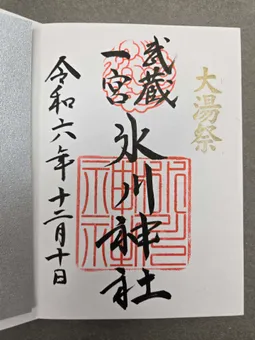 大湯祭
武蔵
一宮
氷川神社
令和六年十二月十日